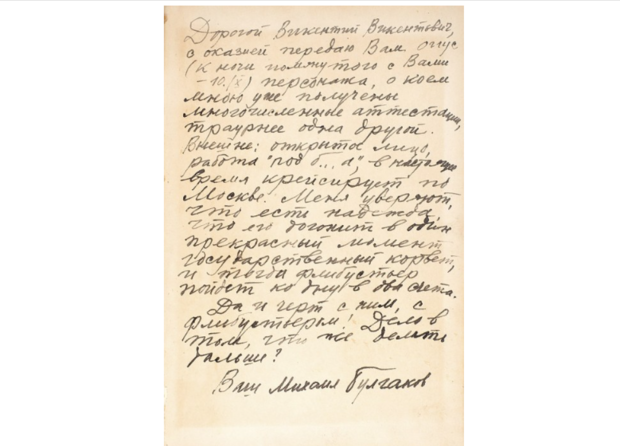 Дорогой Викентий Викентович,
с оказией передаю Вам опус
(к ночи помянутого с Вами
– 10./X) персонажа, о коем
мною уже получены
многочисленные аттестации,
траурнее одна другой.
Внешне: открытое лицо,
работа "под б... а", в настоящее
время крейсирует по
Москве. Меня уверяют,
что есть надежда,
что его догонит в один
прекрасный момент
государственный корвет,
и тогда флибустьер
пойдет ко дну в два счета.
Да и черт с ним, с
флибустьером! Дело в
том, что же делать
дальше?
Ваш Михаил Булгаков